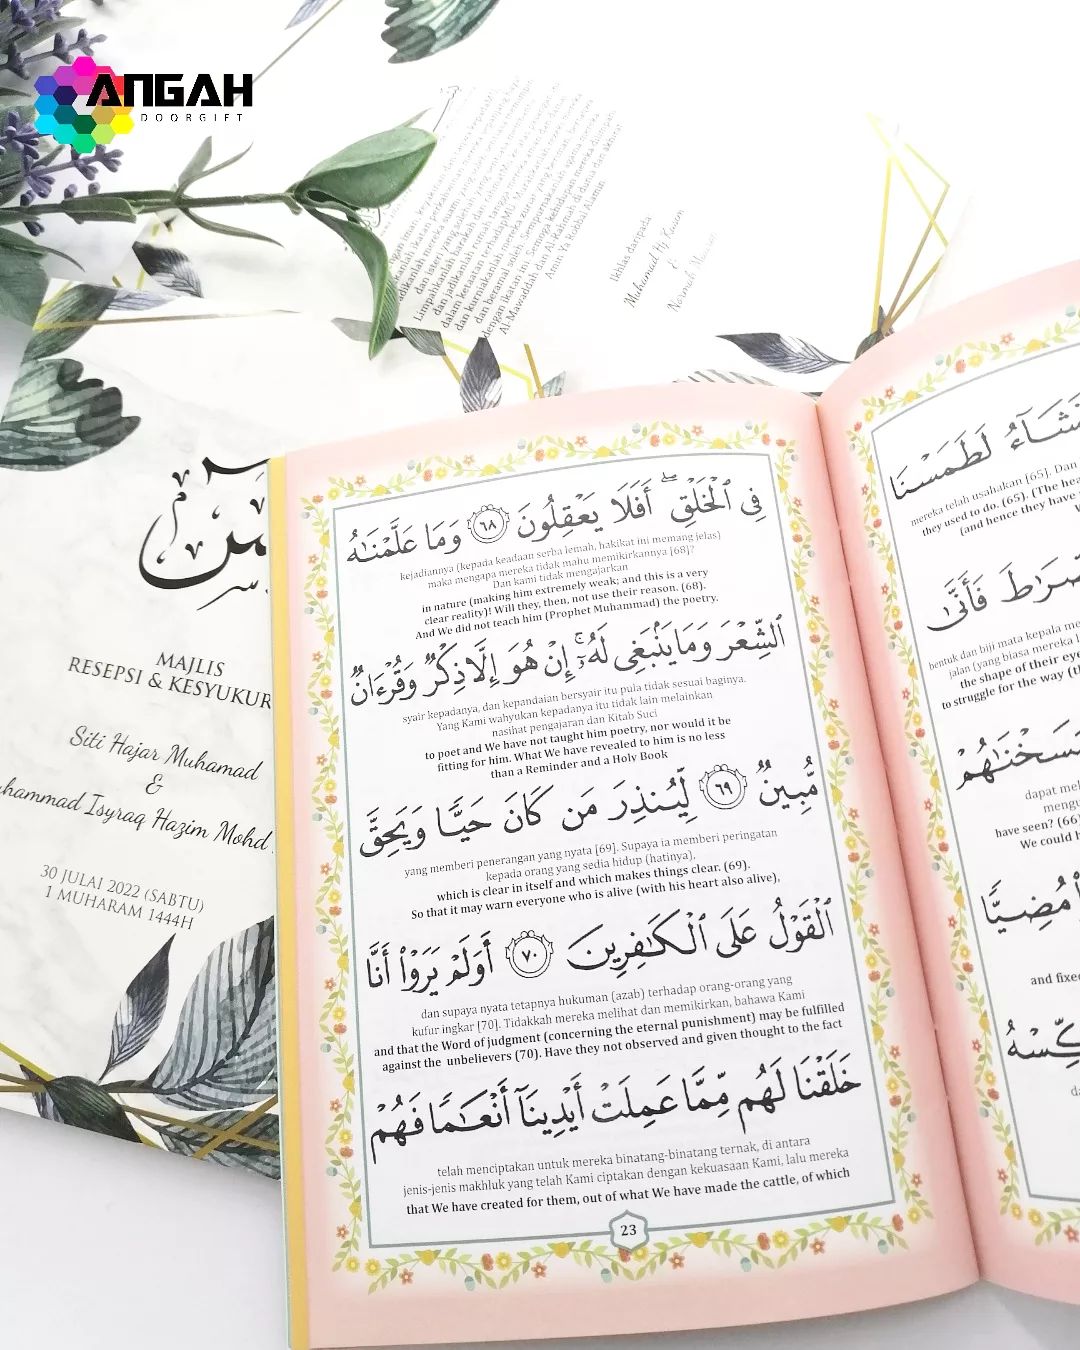 ANGAH
DOORGIFT
dan isteri yang solehah
dan jadikanlah rumah tangga
dalam ketaatan terhadapMu
dan kurniakanlah mereka zuriat yang
dan beramal saleh. Sempurnakanlah agama mereka
dengan ikatan ini. Semoga kehidupan mereka disimpan
Al-Mawaddah dan Al-Rahmah di dunia dan akhirat
Amin Ya Robbal Alamin
Ikhlas daripada
Muhamad
&
Normah
MAJLIS
RESEPSI & KESYUKUR
Siti Hajar Muhamad
&
Isyraq Hazim Mohd
30 JULAI 2022 (SABTU)
1 MUHARAM 1444H
فِي ٱلْخَلْقِ ۖ أَفَلَا يَعْقِلُونَ ٦٨ وَمَا عَلَّمْنَـٰهُ
kejadiannya (kepada keadaan serba lemah, hakikat ini memang jelas)
maka mengapa mereka tidak mahu memikirkannya [68]?
Dan kami tidak mengajarkan
in nature (making him extremely weak; and this is a very
clear reality)! Will they, then, not use their reason. (68).
And We did not teach him (Prophet Muhammad) the poetry.
ٱلشِّعْرَ وَمَا يَنۢبَغِى لَهُۥٓ ۚ إِنْ هُوَ إِلَّا ذِكْرٌ وَقُرْءَانٌ
syair kepadanya, dan kepandaian bersyair itu pula tidak sesuai baginya.
Yang Kami wahyukan kepadanya itu tidak lain melainkan
nasihat pengajaran dan Kitab Suci
to poet and We have not taught him poetry, nor would it be
fitting for him. What We have revealed to him is no less
than a Reminder and a Holy Book
مُّبِينٌ ٦٩ لِّيُنذِرَ مَن كَانَ حَيًّا وَيَحِقَّ
yang memberi penerangan yang nyata [69]. Supaya ia memberi peringatan
kepada orang yang sedia hidup (hatinya),
which is clear in itself and which makes things clear. (69).
So that it may warn everyone who is alive (with his heart also alive),
ٱلْقَوْلُ عَلَى ٱلْكَـٰفِرِينَ ٧٠ أَوَلَمْ يَرَوْا۟ أَنَّا
dan supaya nyata tetapnya hukuman (azab) terhadap orang-orang yang
kufur ingkar [70]. Tidakkah mereka melihat dan memikirkan, bahawa Kami
and that the Word of judgment (concerning the eternal punishment) may be fulfilled
against the unbelievers (70). Have they not observed and given thought to the fact
خَلَقْنَا لَهُم مِّمَّا عَمِلَتْ أَيْدِينَآ أَنْعَـٰمًا فَهُمْ
telah menciptakan untuk mereka binatang-binatang ternak, di antara
jenis-jenis makhluk yang telah Kami ciptakan dengan kekuasaan Kami, lalu mereka
that We have created for them, out of what We have made the cattle, of which
23
لَطَمَسْنَا
mereka telah usahakan [65]. Dan
they used to do. (65). (The
(and hence they have
فَأَنَّىٰ
bentuk dan biji mata kepala
jalan (yang biasa mereka
the shape of their
to struggle for the way
لَمَسَخْنَـٰهُمْ
dapat
have seen? (66)
We could
مُضِيًّا
and fixed